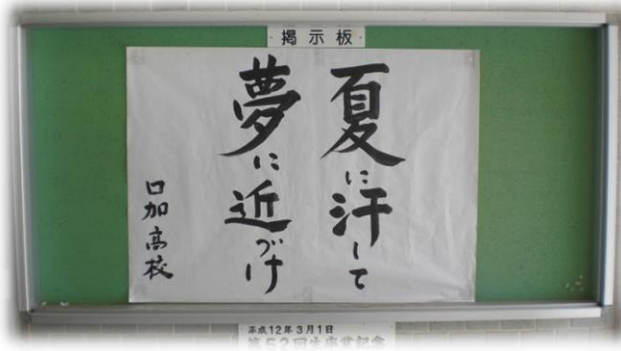 掲示板
夏に汗して
夢に近づけ
口加高校
平成12年3月1日
第52回生卒業記念